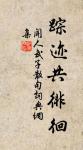 踪迹共徘徊
闻人武子散句词典网
集